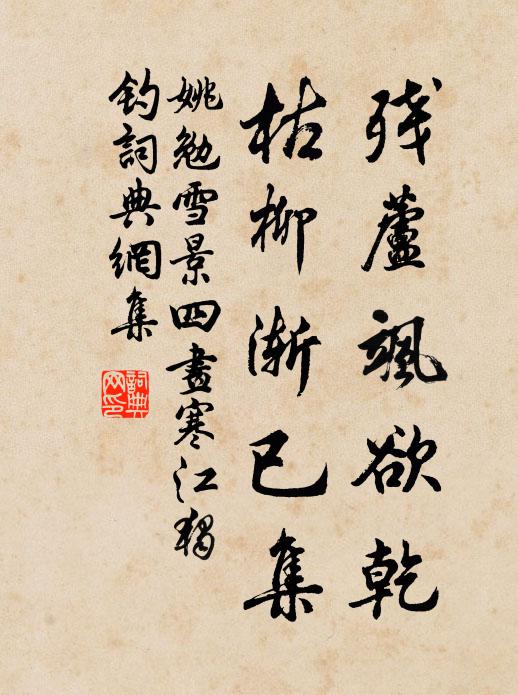 残蘆颯欲乾
枯柳渐已集
姚勉雪景四畫寒江獨
釣詞典網集
詞典
网印